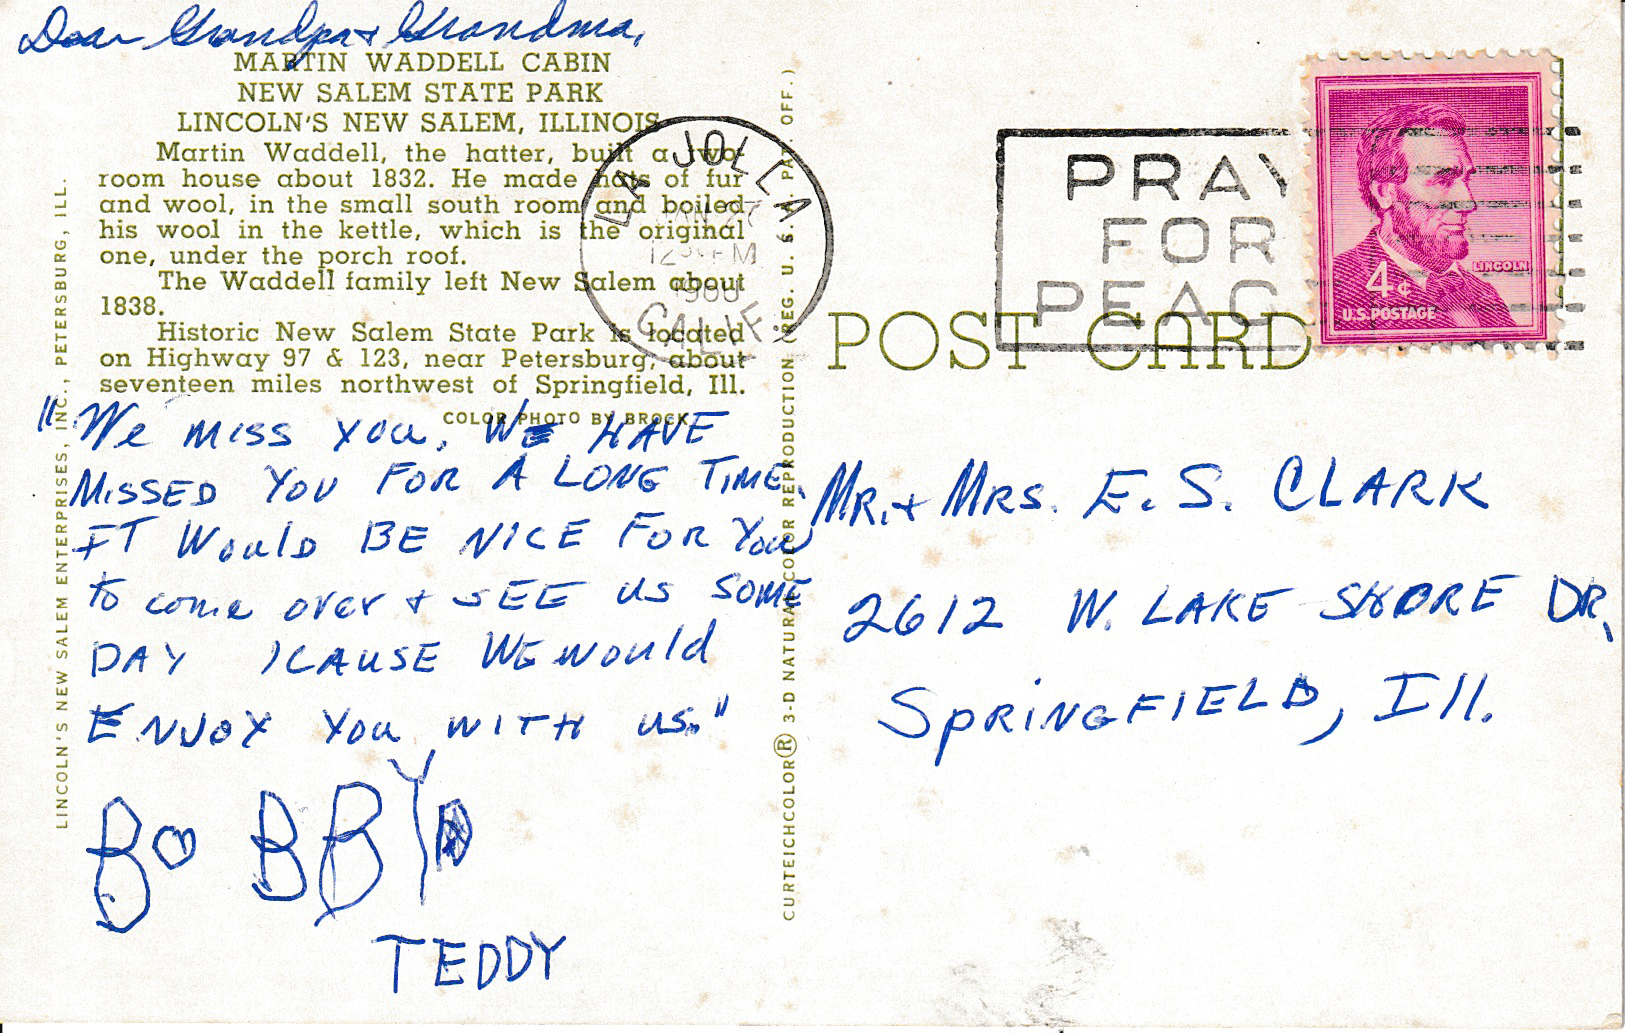 Dear Grandpa + Grandma,
MARTIN WADDELL CABIN
NEW SALEM STATE PARK
LINCOLN'S NEW SALEM, ILLINOIS
Martin Waddell, the hatter, built a two-
room house about 1832. He made hats of fur
and wool, in the small south room and boiled
his wool in the kettle, which is the original
one, under the porch roof.
The Waddell family left New Salem about
1838.
Historic New Salem State Park is located
on Highway 97 & 123, near Petersburg, about
seventeen miles northwest of Springfield, Ill.
COLOR PHOTO BY BROCK
"We MISS YOU, WE HAVE
MISSED YOU FOR A LONG TIME.
IT WOULD BE NICE FOR YOU
to come over + SEE US SOME
DAY 'CAUSE WE WOULD
ENJOY YOU WITH US."
BOBBY
TEDDY
LINCOLN'S NEW SALEM ENTERPRISES, INC., PETERSBURG, ILL.
CURTEICHCOLOR® 3-D NATURAL COLOR REPRODUCTION (REG. U. S. A. PAT. OFF.)
LA JOLLA
JAN 27
PM
CALIF
PRAY
FOR
PEAC
LINCOLN
4¢
U.S. POSTAGE
POST CARD
MR. + MRS. E. S. CLARK
2612 W. LAKE SHORE DR.
SPRINGFIELD, Ill.